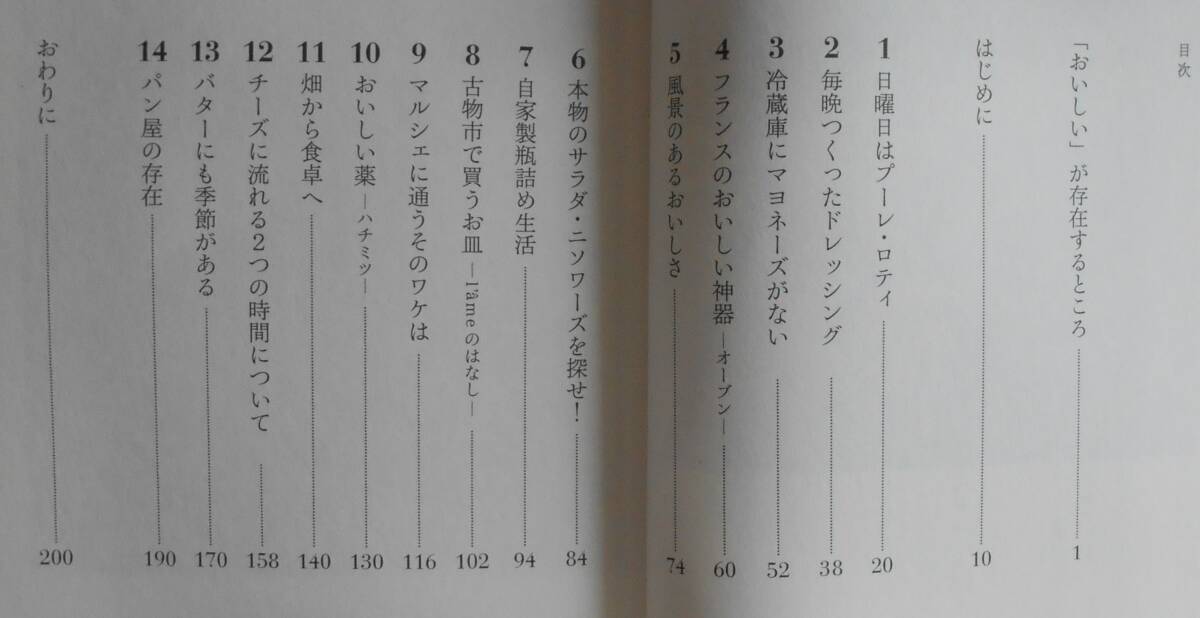 目次
「おいしい」が存在するところ 1
はじめに 10
1 日曜日はプーレ・ロティ 20
2 毎晩つくったドレッシング 38
3 冷蔵庫にマヨネーズがない 52
4 フランスのおいしい神器 ―オーブン― 60
5 風景のあるおいしさ 74
6 本物のサラダ・ニソワーズを探せ! 84
7 自家製瓶詰め生活 94
8 古物市で買うお皿 ―l'âmeのはなし― 102
9 マルシェに通うそのワケは 116
10 おいしい薬 ―ハチミツ― 130
11 畑から食卓へ 140
12 チーズに流れる2つの時間について 158
13 バターにも季節がある 170
14 パン屋の存在 190
おわりに 200